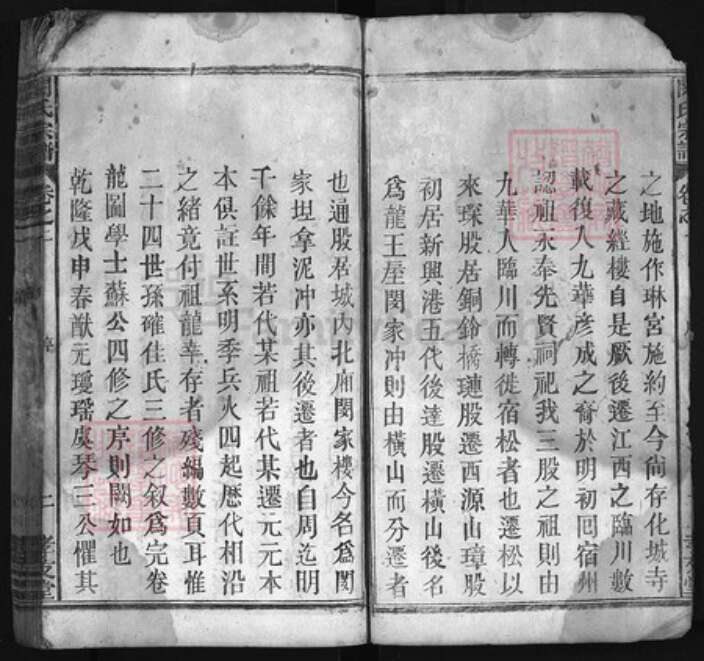 之地施作琳宮施約至今尙存化城寺
之藏經樓自是厥後遷江西之臨川數
載復入九華彥成之裔於明初囘宿州
認祖永奉先賢祠祀我三股之祖則由
九華入臨川而轉徙宿松者也遷松以
來琛股居銅鈴橋璉股遷西源山璋股
初居新興港五代後達股遷橫山後名
爲龍王屋閔家冲則由橫山而分遷者
也通股居城內北廂閔家樓今名爲閔
家坦拿泥冲亦其後遷者也自周迄明
千餘年間若代某祖若代某遷元元本
本俱註世系明季兵火四起歷代相沿
之緒竟付祖龍幸存者殘編數頁耳惟
二十四世孫確佳氏三修之敘爲完卷
龍圖學士蘇公四修之序則闕如也
乾隆戊申春猷元瓊瑶虞琴三公懼其
氏宗譜
卷之
二